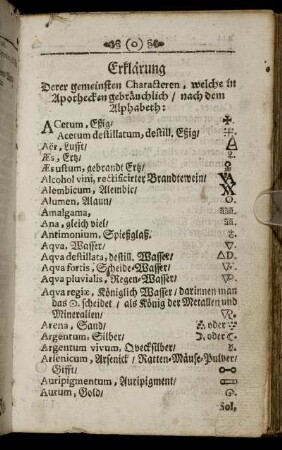 (o)
Erklärung
Derer gemeinsten Characteren, welche in
Apothecken gebräuchlich / nach dem
Alphabeth:
ACetum, Eßig/
Acetum destillatum, destill. Eßig/
Aër, Lufft/
Æs, Ertz/
Æs ustum, gebrandt Ertz/
Alcohol vini, rectificirter Brandtewein/
Alembicum, Alembic/
Alumen, Alaun/
Amalgama, āāā.
Ana, gleich viel/ āā.
Antimonium, Spießglaß. ♁
Aqva, Wasser/ ▽.
Aqva destillata, destill. Wasser/
Aqva fortis, Scheide-Wasser/
Aqva pluvialis, Regen-Wasser/
Aqva regiæ, Königlich Wasser/ darinnen man
das ☉. scheidet / als König der Metallen und
Mineralien/
Arena, Sand/ oder
Argentum, Silber/ ☽. oder
Argentum vivum, Qvecksilber/ ☿.
Arsenicum, Arsenick/ Ratten-Mäuse-Pulver/
Gifft/
Auripigmentum, Auripigment/
Aurum, Gold/ ☉.
Sol,